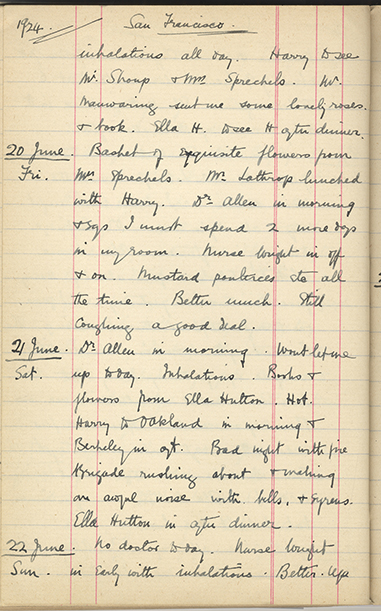 1924. San Francisco.
inhalations all day. Harry to see
Mr. Shoup & Mrs Sprechels. Mr.
Manwaring sent me some lovely roses.
& book. Ella H. to see H after dinner.
20 June. Basket of exquisite flowers from
Fri. Mrs Sprechels. Mr. Lathrop lunched
with Harry. Dr. Allen in morning
& says I must spend 2 more days
in my room. Nurse Wright in off
& on. Mustard poultices etc all
the time. Better much. Still
coughing a good deal.
21 June. Dr. Allen in morning. Wont let me
Sat. up today. Inhalations. Books &
flowers from Ella Hutton. Hot.
Harry to Oakland in morning &
Berkeley in aft. Bad night with fire
Brigade rushing about & making
an awful noise with bells, & syrens.
Ella Hutton in after dinner.
22 June. No doctor today. Nurse Wright
Sun. in early with inhalations. Better. Up